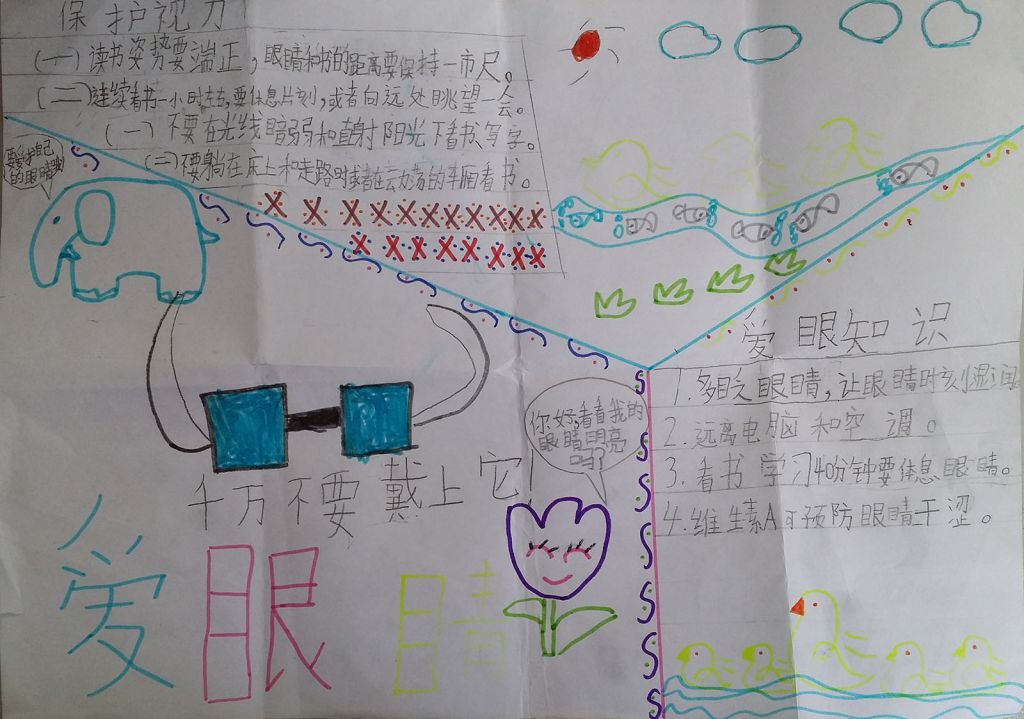 保护视力
(一)读书姿势要端正,眼睛和书的距离要保持一市尺。
(二)连续看书一小时左右,要休息片刻,或者向远处眺望一会。
(一)不要在光线暗弱和直射阳光下看书、写字。
(二)不要躺在床上和走路时或者在动荡的车厢看书。
的眼睛
爱眼知识
1.多眨眼睛,让眼睛时刻湿润
2.远离电脑和空调。
3.看书学习40分钟要休息眼睛。
4.维生素A可预防眼睛干涩。
你好,看看我的
眼睛闪亮
吗?
千万不要戴上它
爱眼睛